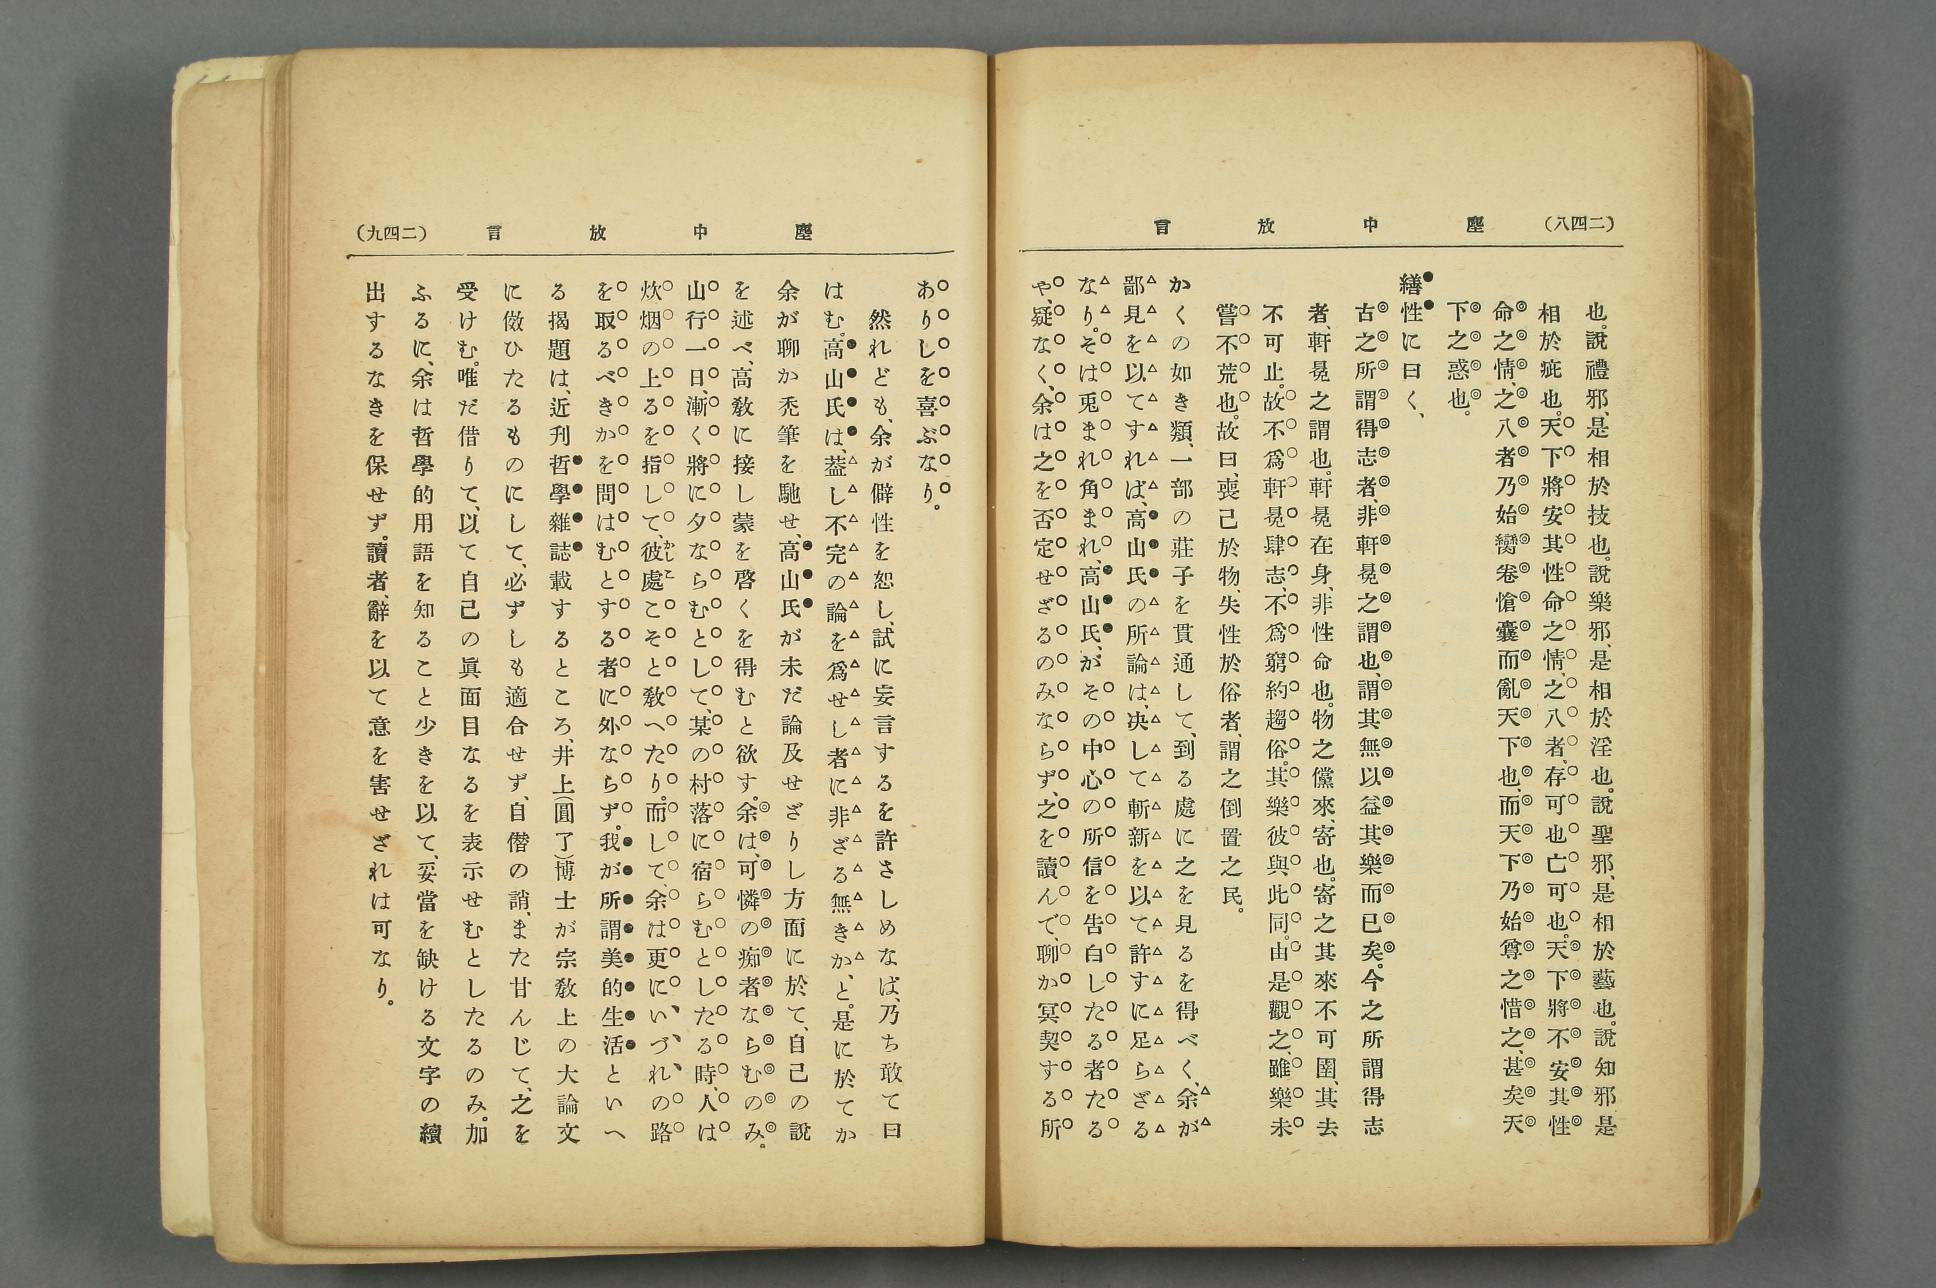 (二四八) 塵中放言
也。說禮邪、是相於技也。說樂邪、是相於淫也。說聖邪、是相於藝也。說知邪、是
相於疵也。天下將安其性命之情、之八者、存可也亡可也。天下將不安其性
命之情、之八者乃始臠卷愴囊而亂天下也、而天下乃始尊之惜之、甚矣天
下之惑也。
繕性に曰く、
古之所謂得志者、非軒冕之謂也、謂其無以益其樂而已矣。今之所謂得志
者、軒冕之謂也。軒冕在身、非性命也。物之儻來、寄也。寄之其來不可圉、其去
不可止。故不爲軒冕肆志、不爲窮約趨俗。其樂彼與此同。由是觀之、雖樂未
嘗不荒也。故曰、喪己於物、失性於俗者、謂之倒置之民。
かくの如き類、一部の莊子を貫通して、到る處に之を見るを得べく、余が
鄙見を以てすれば、高山氏の所論は、决して斬新を以て許すに足らざる
なり。そは兎まれ角まれ、高山氏、がその中心の所信を告白したる者たる
や、疑なく、余は之を否定せざるのみならず、之を讀んで、聊か冥契する所
塵中放言 (二四九)
ありしを喜ぶなり。
然れども、余が僻性を恕し、試に妄言するを許さしめなば、乃ち敢て曰
はむ。高山氏は、葢し不完の論を爲せし者に非ざる無きか、と。是に於てか
余が聊か禿筆を馳せ、高山氏が未だ論及せざりし方面に於て、自己の說
を述べ、高敎に接し蒙を啓くを得むと欲す。余は、可憐の痴者ならむのみ。
山行一日、漸く將に夕ならむとして、某の村落に宿らむとしたる時、人は
炊烟の上るを指して、彼處こそと敎へたり。而して、余は更に、いづれの路
を取るべきかを問はむとする者に外ならず。我が所謂美的生活といへ
る揭題は、近刋哲學雜誌載するところ、井上(圓了)博士が宗敎上の大論文
に倣ひたるものにして、必ずしも適合せず、自僭の誚、また甘んじて、之を
受けむ。唯だ借りて、以て自己の眞面目なるを表示せむとしたるのみ。加
ふるに、余は哲學的用語を知ること少きを以て、妥當を缺ける文字の續
出するなきを保せず。讀者、辭を以て意を害せざれは可なり。